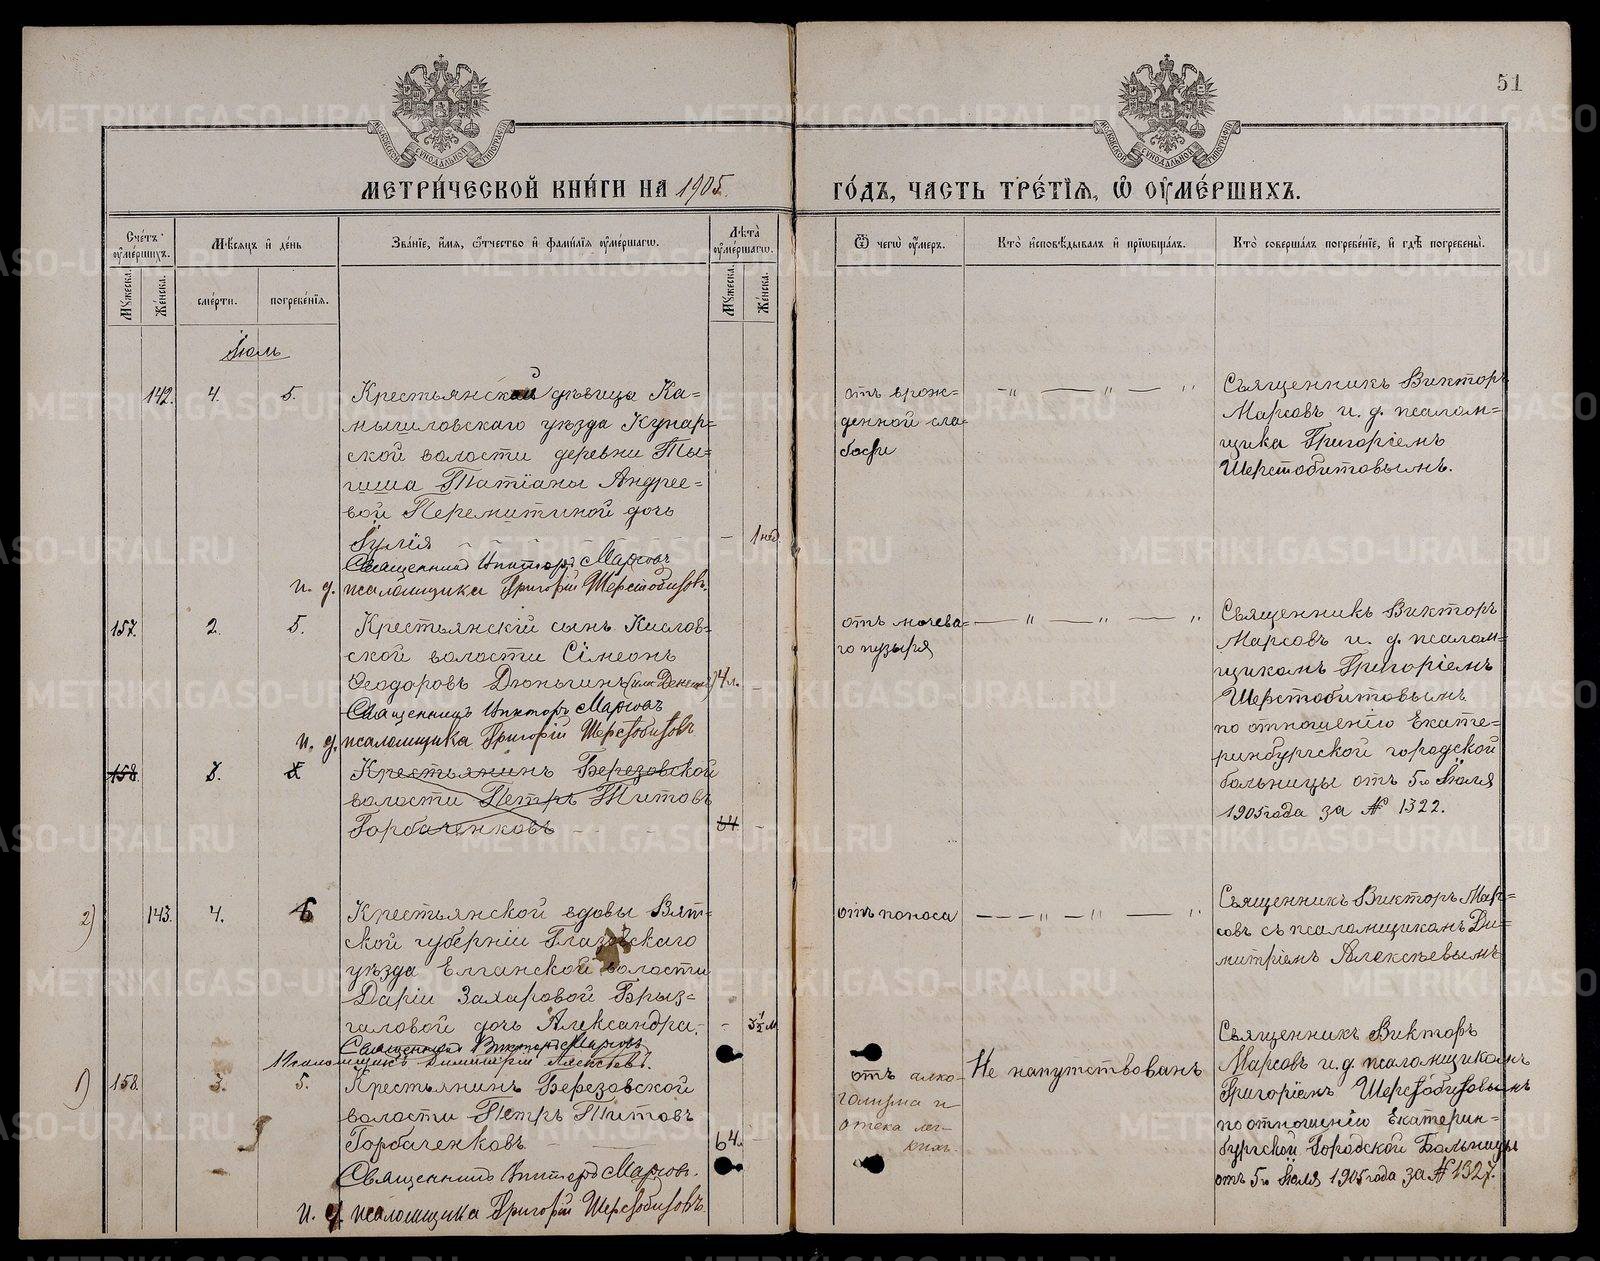 51
МЕТРИ́ЧЕСКОЙ КНИ́ГИ НА 1905.
ГО́ДЪ, ЧАСТЬ ТРЕ́ТІѦ, Ѡ ОУМЕ́РШИХЪ.
Сче́тъ оумершихъ.
Мѣсяцъ и де́нь
Зва́ніе, и́мя, о́тчество и фами́лія оуме́ршагѡ.
Лѣта̀ оуме́ршагѡ.
Ѿ чегѡ̀ оу́меръ.
Кто̀ и́сповѣдывалъ и прїѡбща́лъ.
Кто̀ соверша́лъ погребе́ніе, и гдѣ̀ погребены̀.
Мужеска.
Же́нска.
сме́рти.
погребе́нія.
Мужеска.
Же́нска.
Іюль
142. 4. 5.
Крестьянской дѣвицы Ка-
мышловскаго уѣзда Кунар-
ской волости деревни Ты-
гиша Татіаны Андрее-
вой Перемитиной дочь
Іулія 1 нед.
Священникъ Викторъ Марсовъ
и. д. псаломщика Григорій Шерстобитовъ.
отъ врож-
денной сла-
бости
Священникъ Викторъ
Марсовъ и. д. псалом-
щика Григоріемъ
Шерстобитовымъ.
157. 2. 5.
Крестьянскій сынъ Кислов-
ской волости Сімеонъ
Ѳеодоровъ Дюньгинъ (или 4 л.
Священникъ Викторъ Марсовъ
и. д. псаломщика Григорій Шерстобитовъ
отъ мочева-
го пузыря
Священникъ Викторъ
Марсовъ и. д. псалом-
щикомъ Григоріемъ
Шерстобитовымъ
по отношенію Екате-
ринбургской городской
больницы отъ 5го Іюля
1905 года за № 1322.
158.
Крестьянинъ Березовской
волости Петръ Титовъ
Горбаченковъ 64
2) 143. 4. 6
Крестьянской вдовы Вят-
ской губерніи Глазовскаго
уѣзда Елганской волости
Даріи Захаровой Брыз-
галовой дочь Александра. 3½ м.
Священникъ Викторъ Марсовъ
Псаломщикъ Димитрій Алексѣевъ.
отъ поноса
Священникъ Викторъ Мар-
совъ съ псаломщикомъ Ди-
митріемъ Алексѣевымъ
1) 158. 3. 5.
Крестьянинъ Березовской
волости Петръ Титовъ
Горбаченковъ 64.
Священникъ Викторъ Марсовъ.
и. д. псаломщика Григорій Шерстобитовъ.
отъ алко-
голизма и
отека лег-
кихъ.
Не напутствованъ
Священникъ Викторъ
Марсовъ и. д. псаломщикомъ
Григоріемъ Шерстобитовымъ
по отношенію Екатерин-
бургской Городской Больницы
отъ 5го Іюля 1905 года за № 1327.
METRIKI.GASO-URAL.RU